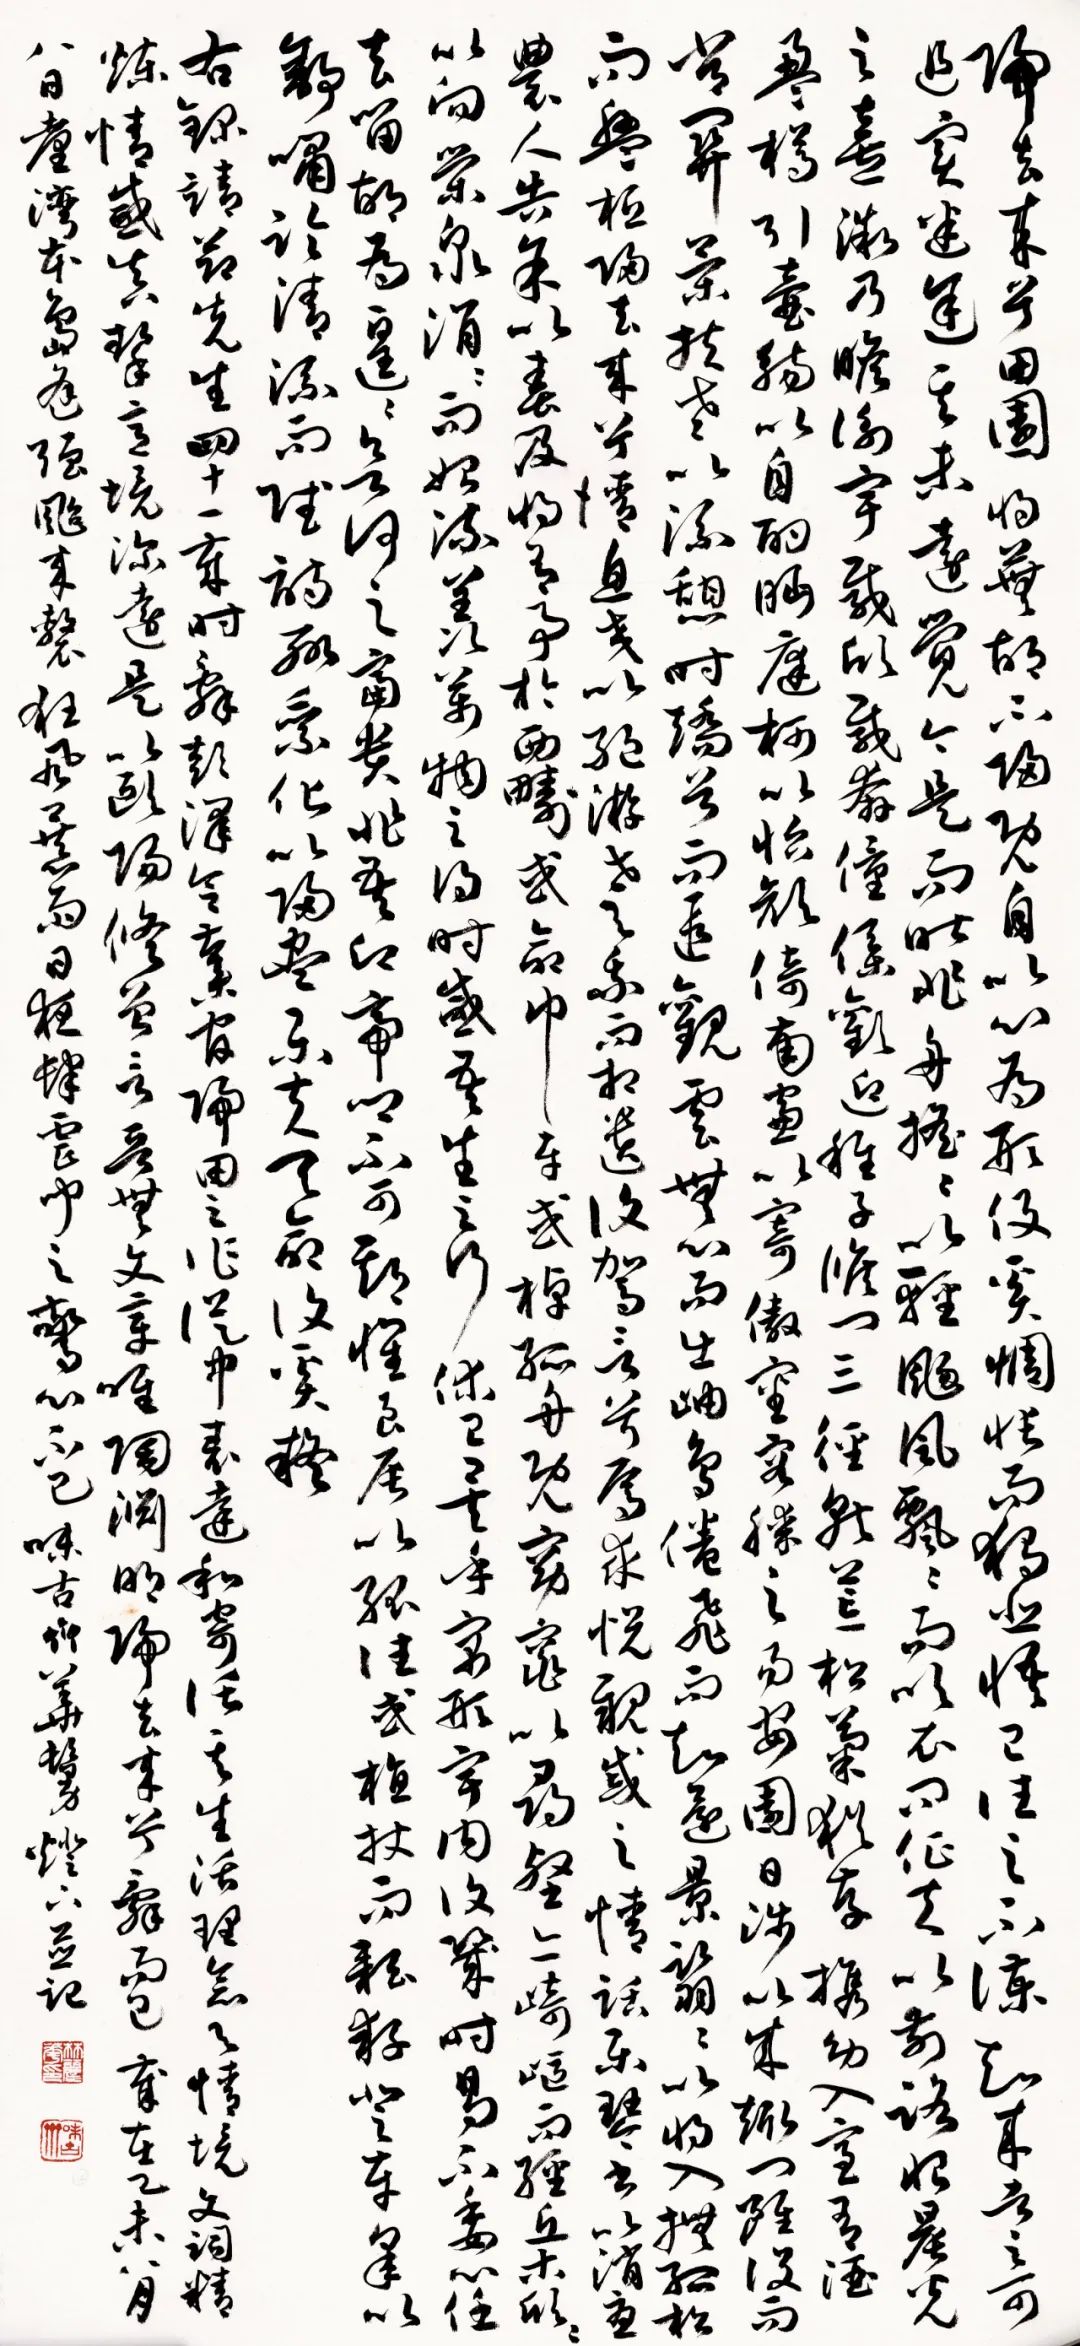 歸去來兮田園將蕪胡不歸既自以心為形役奚惆悵而獨悲悟已往之不諫知來者之可
追實迷途其未遠覺今是而昨非舟搖〻以輕颺風飄〻而吹衣問征夫以前路恨晨光
之熹微乃瞻衡宇載欣載奔僮僕歡迎稚子候門三徑就荒松菊猶存攜幼入室有酒
盈樽引壺觴以自酌眄庭柯以怡顏倚南窗以寄傲審容膝之易安園日涉以成趣門雖設而
常關策扶老以流憩時矯首而遐觀雲無心而出岫鳥倦飛而知還景翳〻以將入撫孤松
而盤桓歸去來兮情息交以絕游世與我而相遺復駕言兮焉求悅親戚之情話樂琴書以消憂
農人告余以春及將有事於西疇或命巾車或棹孤舟既窈窕以尋壑亦崎嶇而經丘木欣〻
以向榮泉涓〻而始流羨萬物之得時感吾生之行休已矣乎寓形宇內復幾時曷不委心任
去留胡為遑〻欲何之富貴非吾願帝鄉不可期懷良辰以孤往或植杖而耘耔登東皋以
舒嘯臨清流而賦詩聊乘化以歸盡樂夫天命復奚疑
右錄靖節先生四十一歲時辭彭澤令棄官歸田之作從中表達和寄活其生活理念之情境文詞精
煉情感真摯意境深遠是以歐陽修曾言晉無文章唯陶淵明歸去來兮辭而已 歲在乙未八月
八日臺灣本島逢強颱來襲狂風暴雨日夜肆虐中之驚心不已 味古齋 華 燈下並記